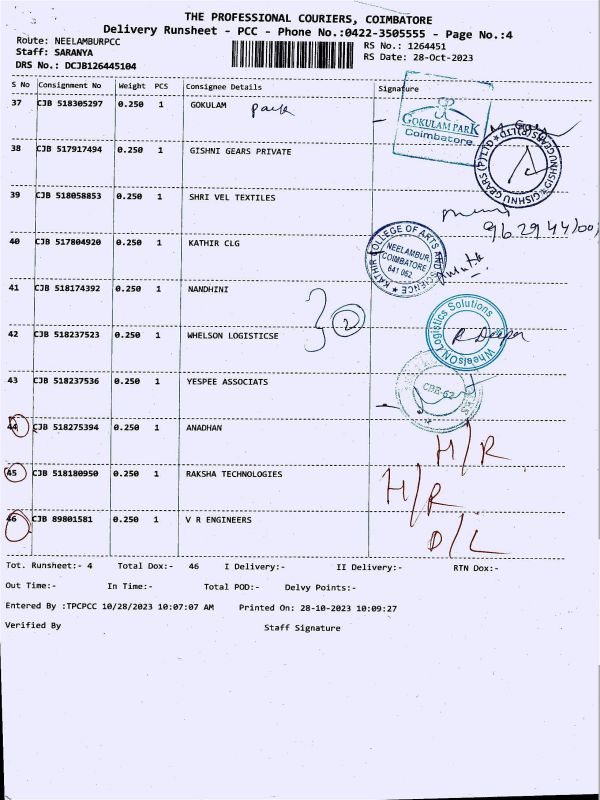 THE PROFESSIONAL COURIERS, COIMBATORE
Delivery Runsheet - PCC - Phone No.:0422-3505555 - Page No.:4
Route: NEELAMBURPCC
RS No.: 1264451
Staff: SARANYA
RS Date: 28-Oct-2023
DRS No.: DCJB126445104
S No Consignment No Weight PCS Consignee Details Signature
37 CJB 518305297 0.250 1 GOKULAM park
GOKULAM PARK
Coimbatore
38 CJB 517917494 0.250 1 GISHNI GEARS PRIVATE
GISHNU GEARS (P) LTD
39 CJB 518058853 0.250 1 SHRI VEL TEXTILES
40 CJB 517804920 0.250 1 KATHIR CLG
KATHIR COLLEGE OF ARTS AND SCIENCE
NEELAMBUR,
COIMBATORE
641 062
41 CJB 518174392 0.250 1 NANDHINI
2
42 CJB 518237523 0.250 1 WHELSON LOGISTICSE
WheelsON Logistics Solutions
43 CJB 518237536 0.250 1 YESPEE ASSOCIATS
CBE-62
44 CJB 518275394 0.250 1 ANADHAN H/R
45 CJB 518180950 0.250 1 RAKSHA TECHNOLOGIES H/R
46 CJB 89801581 0.250 1 V R ENGINEERS D/L
Tot. Runsheet:- 4 Total Dox:- 46 I Delivery:- II Delivery:- RTN Dox:-
Out Time:- In Time:- Total POD:- Delvy Points:-
Entered By :TPCPCC 10/28/2023 10:07:07 AM Printed On: 28-10-2023 10:09:27
Verified By Staff Signature